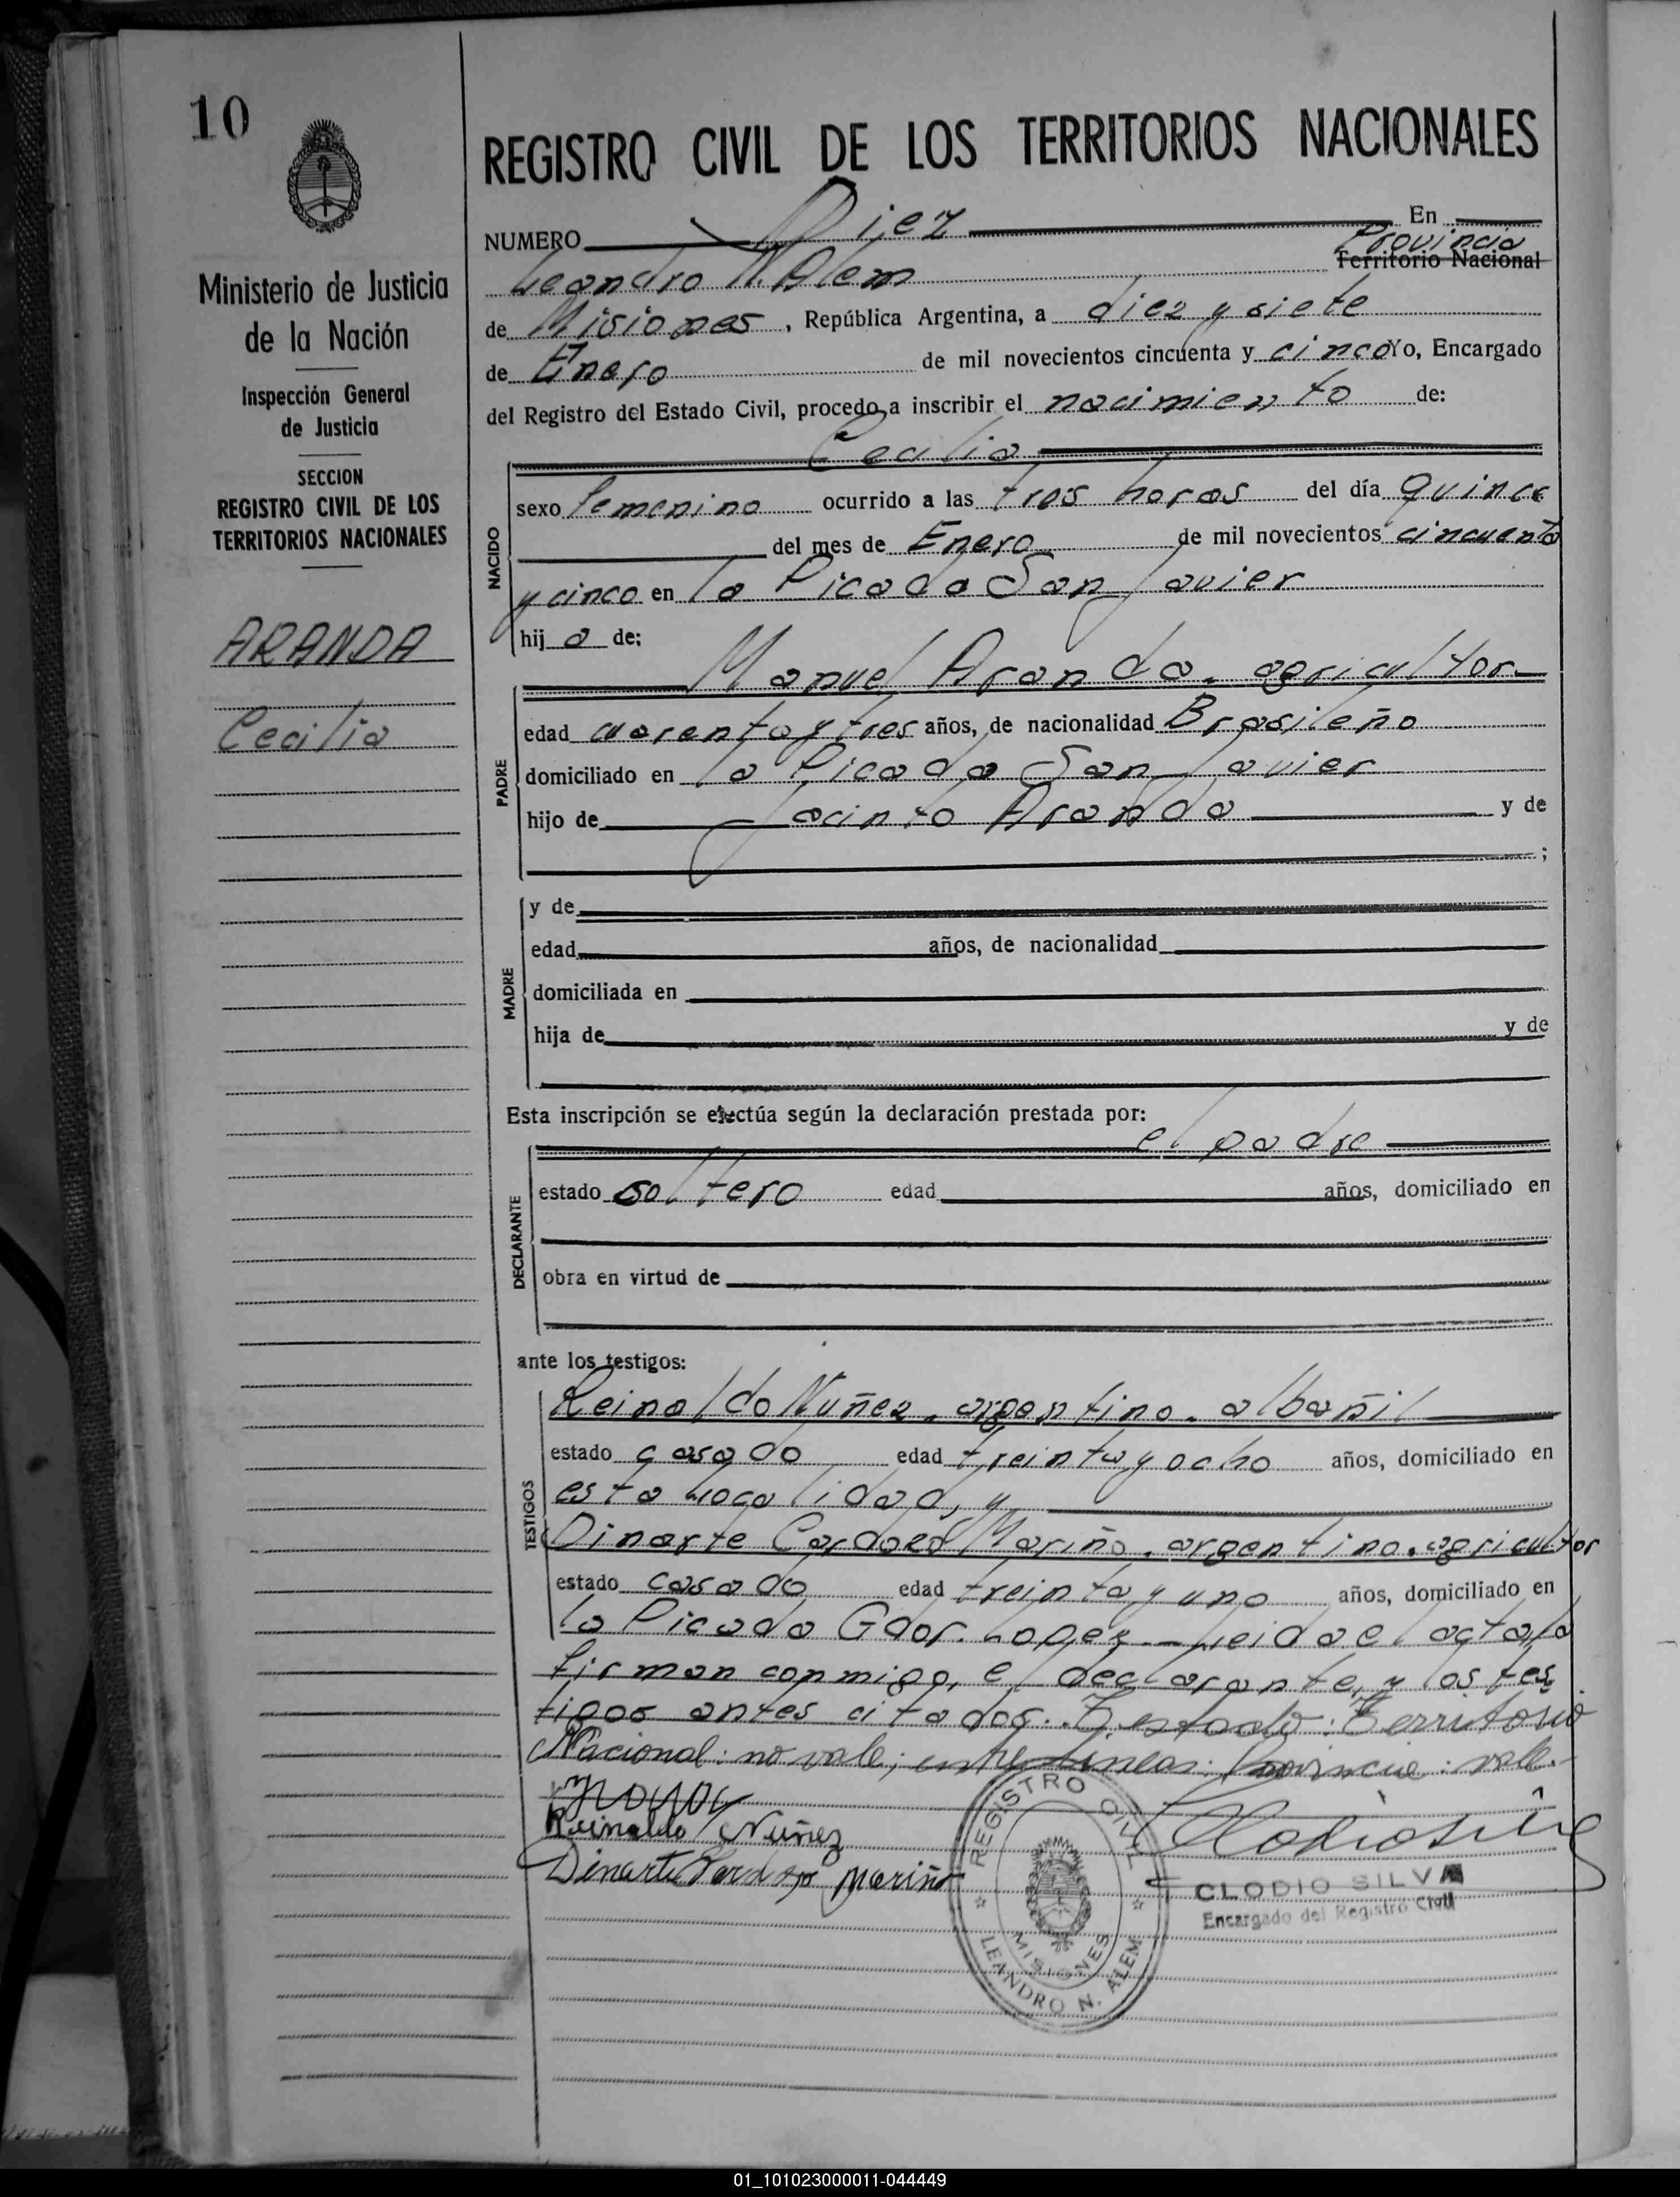 10
REGISTRO CIVIL DE LOS TERRITORIOS NACIONALES
NUMERO Diez En
Provincia
Leandro N. Alem Territorio Nacional
de Misiones, República Argentina, a diez y siete
de Enero de mil novecientos cincuenta y cinco Yo, Encargado
del Registro del Estado Civil, procedo a inscribir el nacimiento de:
Cecilia
NACIDO
sexo femenino ocurrido a las tres horas del día quince
del mes de Enero de mil novecientos cincuenta
y cinco en la Picada San Javier
hija de:
Manuel Aranda. agricultor
PADRE
edad cuarenta y tres años, de nacionalidad Brasileño
domiciliado en la Picada San Javier
hijo de Jacinto Aranda y de
;
MADRE
y de
edad años, de nacionalidad
domiciliada en
hija de y de
Esta inscripción se efectúa según la declaración prestada por:
el padre
DECLARANTE
estado soltero edad años, domiciliado en
obra en virtud de
ante los testigos:
TESTIGOS
Reinaldo Nuñez. argentino. albañil
estado casado edad treinta y ocho años, domiciliado en
esta Localidad, y
Dinarte Cardozo Mariño. argentino. agricultor
estado casado edad treinta y uno años, domiciliado en
la Picada Gdor. Lopez. - Leida el acta la
firman conmigo, el declarante, y los tes
tigos antes citados. Testado: Territorio
Nacional: no vale; entre lineas: Provincia: vale.
Reinaldo Nuñez
Dinarte Cardozo Mariño
REGISTRO CIVIL
MISIONES
LEANDRO N. ALEM
Clodio Silva
CLODIO SILVA
Encargado del Registro Civil
Ministerio de Justicia
de la Nación
Inspección General
de Justicia
SECCION
REGISTRO CIVIL DE LOS
TERRITORIOS NACIONALES
ARANDA
Cecilia
01_101023000011-044449